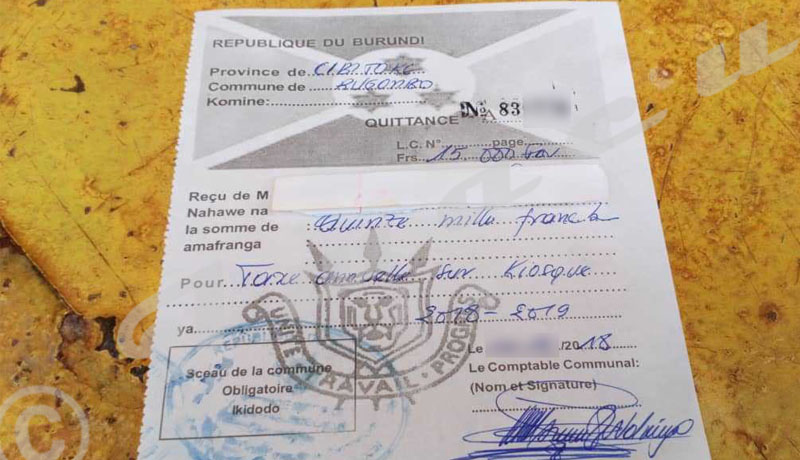 REPUBLIQUE DU BURUNDI
Province de CIBITOKE
Commune de RUGOMBO
Komine:
No A 83
QUITTANCE
L.C. N° page
Frs 15 000 Fbu
Reçu de M
Nahawe na
la somme de : Quinze mille francs
amafranga
Pour : Taxe annuelle sur Kiosque
ya 2018 - 2019
UNITE TRAVAIL PROGRES
Le /2018
Sceau de la commune
Obligatoire
Ikidodo
Le Comptable Communal:
(Nom et Signature)
©